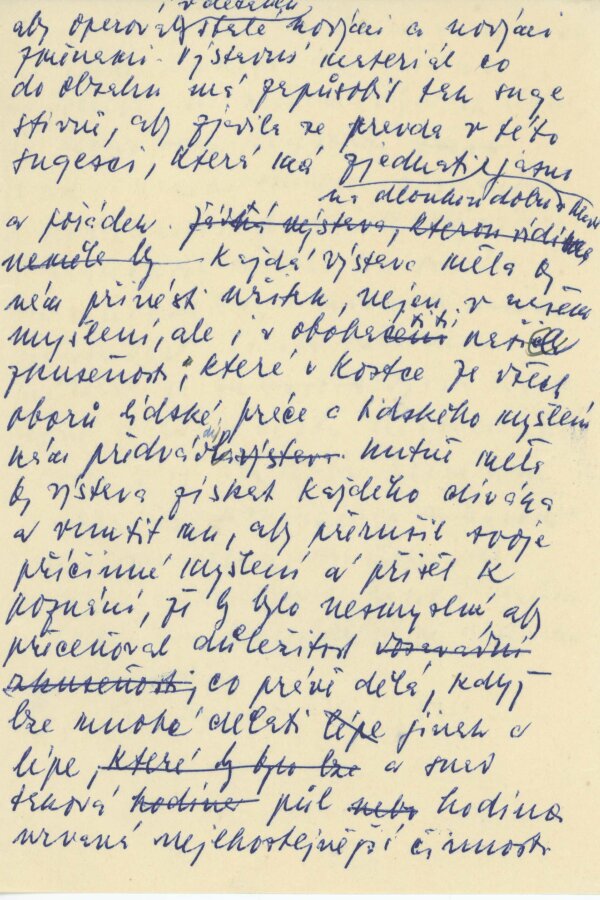 v detailu
aby operoval stále novými a novými
změnami. Výstavní materiál co
do obsahu má zapůsobit tak suge
stivně, aby zjevila se pravda v této
sugesci, která má zjednati jasno
na dlouhou dobu
a pořádek. výstava, kterou vidíme
neměla by každá výstava měla by
nám přinésti užitek, nejen v našem
myšlení, ale i v obohacení titi naší
zkušenosti, které v kostce ze všech
oborů lidské práce a lidského myšlení
nám předvádí výstava. nutně měla
by výstava získat každého diváka
a vnutit mu, aby přerušil svoje
příčinné myšlení a přišel k
poznání, že by bylo nesmyslné, aby
přeceňoval důležitost dosavadní
zkušenosti, co právě dělá, když
lze mnohé dělati lépe jinak a
lépe, které by bylo lze a snad
taková hodina půl nebo hodina
urvaná nejlhostejnější činnosti